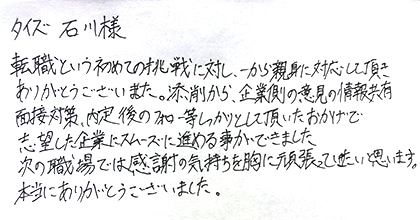 タイズ 石川様
転職という初めての挑戦に対し、一から親身に対応して頂き
ありがとうございました。添削から、企業側の意見の情報共有
面接対策、内定後のフォロー等しっかりとして頂いたおかげで
志望した企業にスムーズに進める事ができました
次の職場では感謝の気持ちを胸に頑張っていきたいと思います。
本当にありがとうございました。